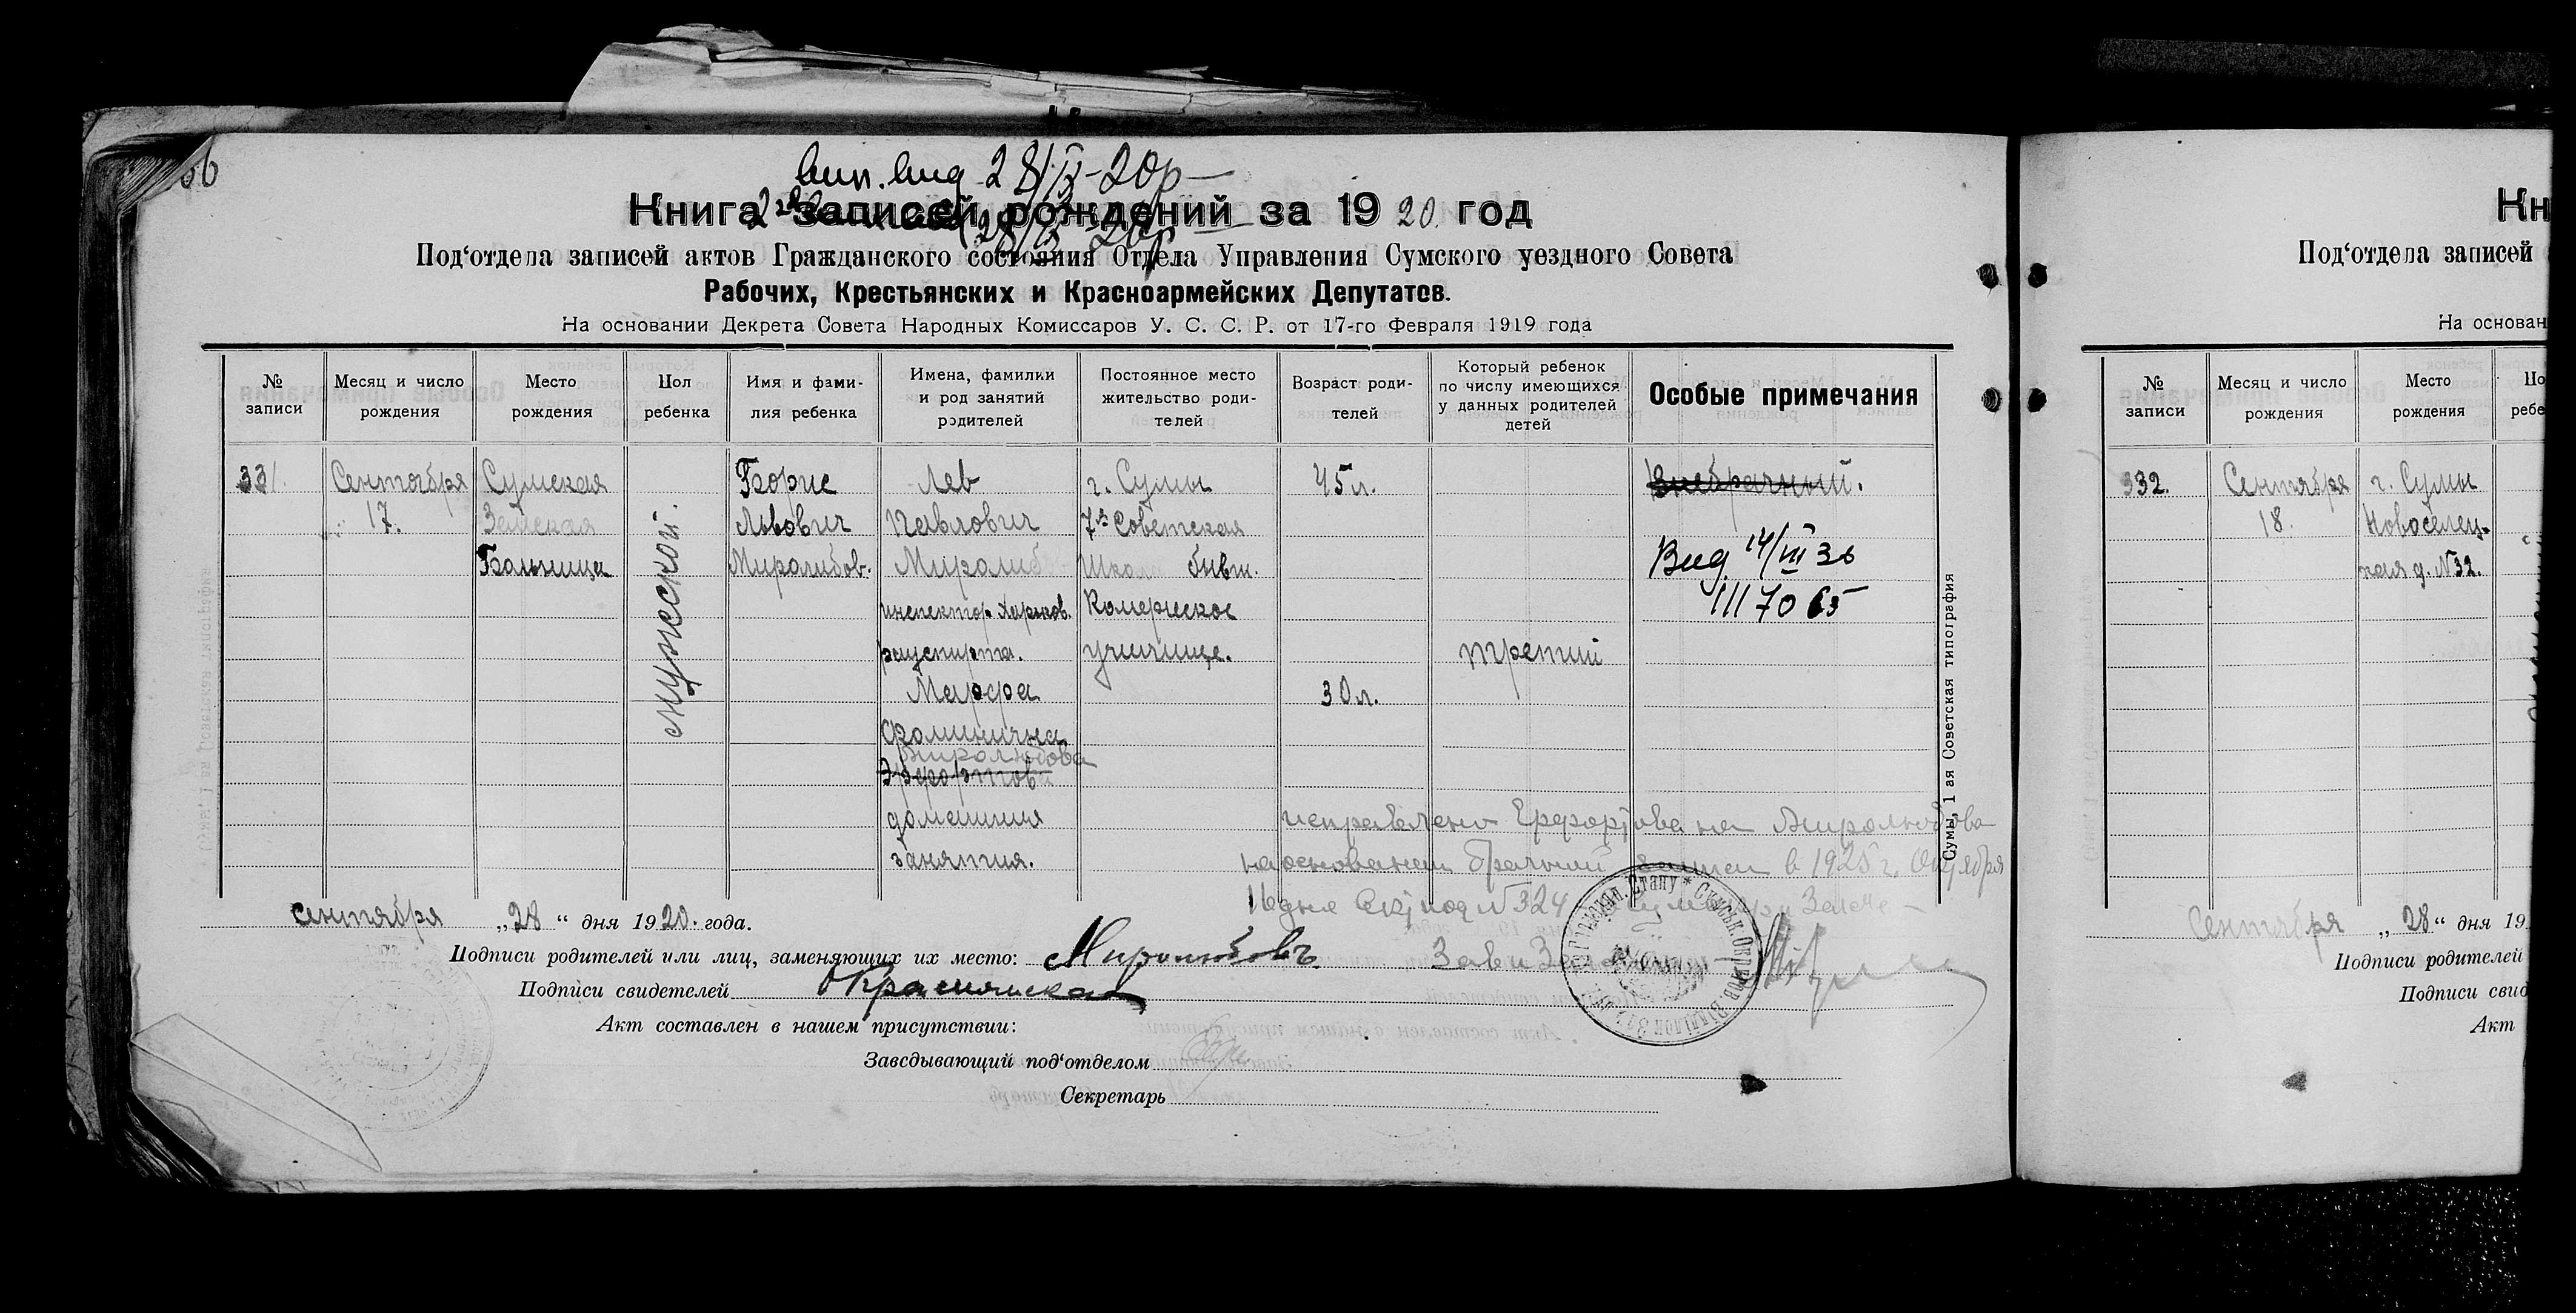 Вип. вид 28/IX-20р
Книга записей рождений за 1920 год
28/IX-20р
Под‘отдела записей актов Гражданского состояния Отдела Управления Сумского уездного Совета
Рабочих, Крестьянских и Красноармейских Депутатов.
На основании Декрета Совета Народных Комиссаров У. С. С. Р. от 17-го Февраля 1919 года
№ записи
Месяц и число рождения
Место рождения
Пол ребенка
Имя и фами-
лия ребенка
Имена, фамилии
и род занятий
родителей
Постоянное место
жительство роди-
телей
Возраст роди-
телей
Который ребенок
по числу имеющихся
у данных родителей
детей
Особые примечания
331.
Сентября
17.
Сумская
Земская
Больница
мужеской.
Борис
Львович
Миролюбов.
Лев
Павлович
Миролюб
инспектор Харьков.
Марфа
Фоминична
Миролюбова
Эрфортова
домашния
занятия.
г. Сумы
7я Советская
Школа бывш.
Комерческое
училище.
45 л.
30 л.
третий
Внебрачный.
Вид 14/III 36
1117065
исправлено Ерфортова на Миролюбова
на основании брачной записи в 1925 г. Октября
16 дня Акт под № 324
Сумы, 1 ая Советская типография
сентября „28“ дня 1920. года.
Подписи родителей или лиц, заменяющих их место: Миролюбовъ
Подписи свидетелей
Акт составлен в нашем присутствии:
Заведывающий под‘отделом
Секретарь
Кн
Под‘отдела записей
На основан
№ записи
Месяц и число рождения
Место рождения
По
ребе
332.
Сентября
18.
г. Сумы
Новоселец-
кая д. №32.
Сентября „28“ дня 19
Подписи родителей
Подписи свид
Акт